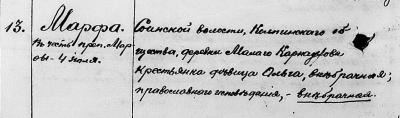 13. Марфа.
Въ честь преп. Мар-
ѳы - 4 іюля.
Соинской волости, Колпинскаго об
щества, деревни Малаго Карнаухова
крестьянка дѣвица Ольга, внѣбрачная;
православнаго исповѣданія, - внѣбрачная.